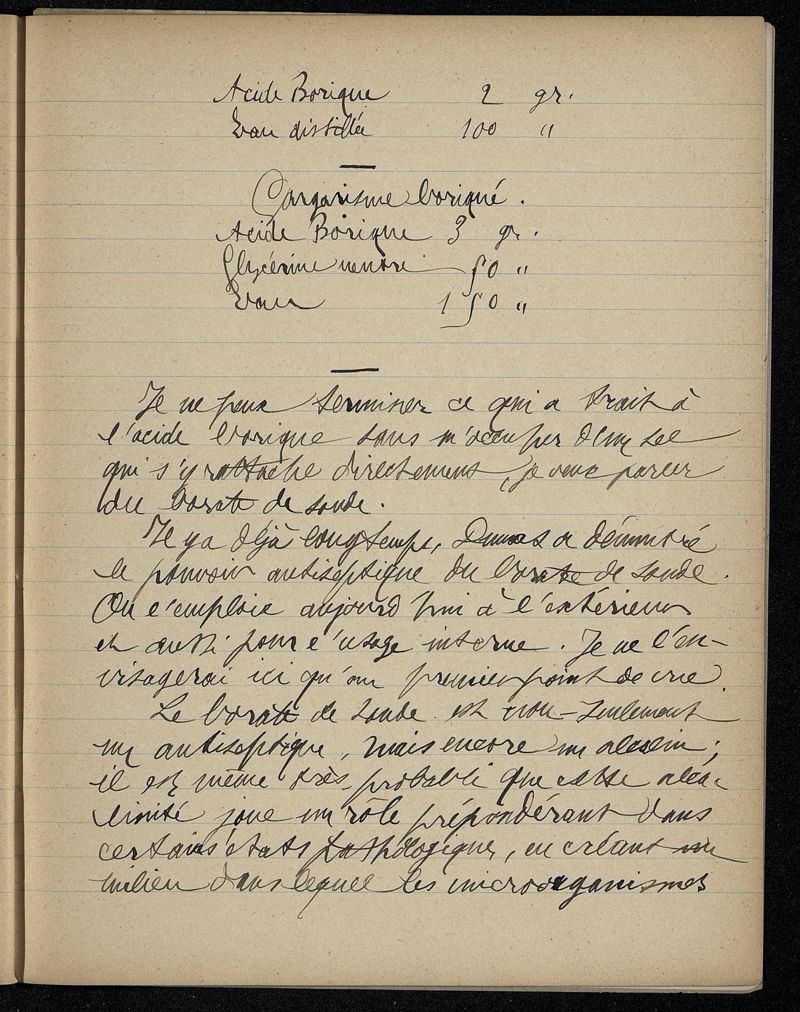 Acide Borique 2 gr.
Eau distillée 100 "
Gargarisme boriqué.
Acide Borique 3 gr.
Glycérine neutre 50 "
Eau 150 "
Je ne peux terminer ce qui a trait à
l'acide borique sans m'occuper d'un sel
qui s'y rattache directement, je veux parler
du borate de soude.
Il y a déjà longtemps, Dumas a démontré
le pouvoir antiseptique du borate de soude.
On l'emploie aujourd'hui à l'extérieur
et aussi pour l'usage interne. Je ne l'en-
visagerai ici qu'au premier point de vue.
Le borate de soude est non-seulement
un antiseptique, mais encore un alcalin;
il est même très probable que cette alca-
linité joue un rôle prépondérant dans
certains états pathologiques, en créant un
milieu dans lequel les microorganismes